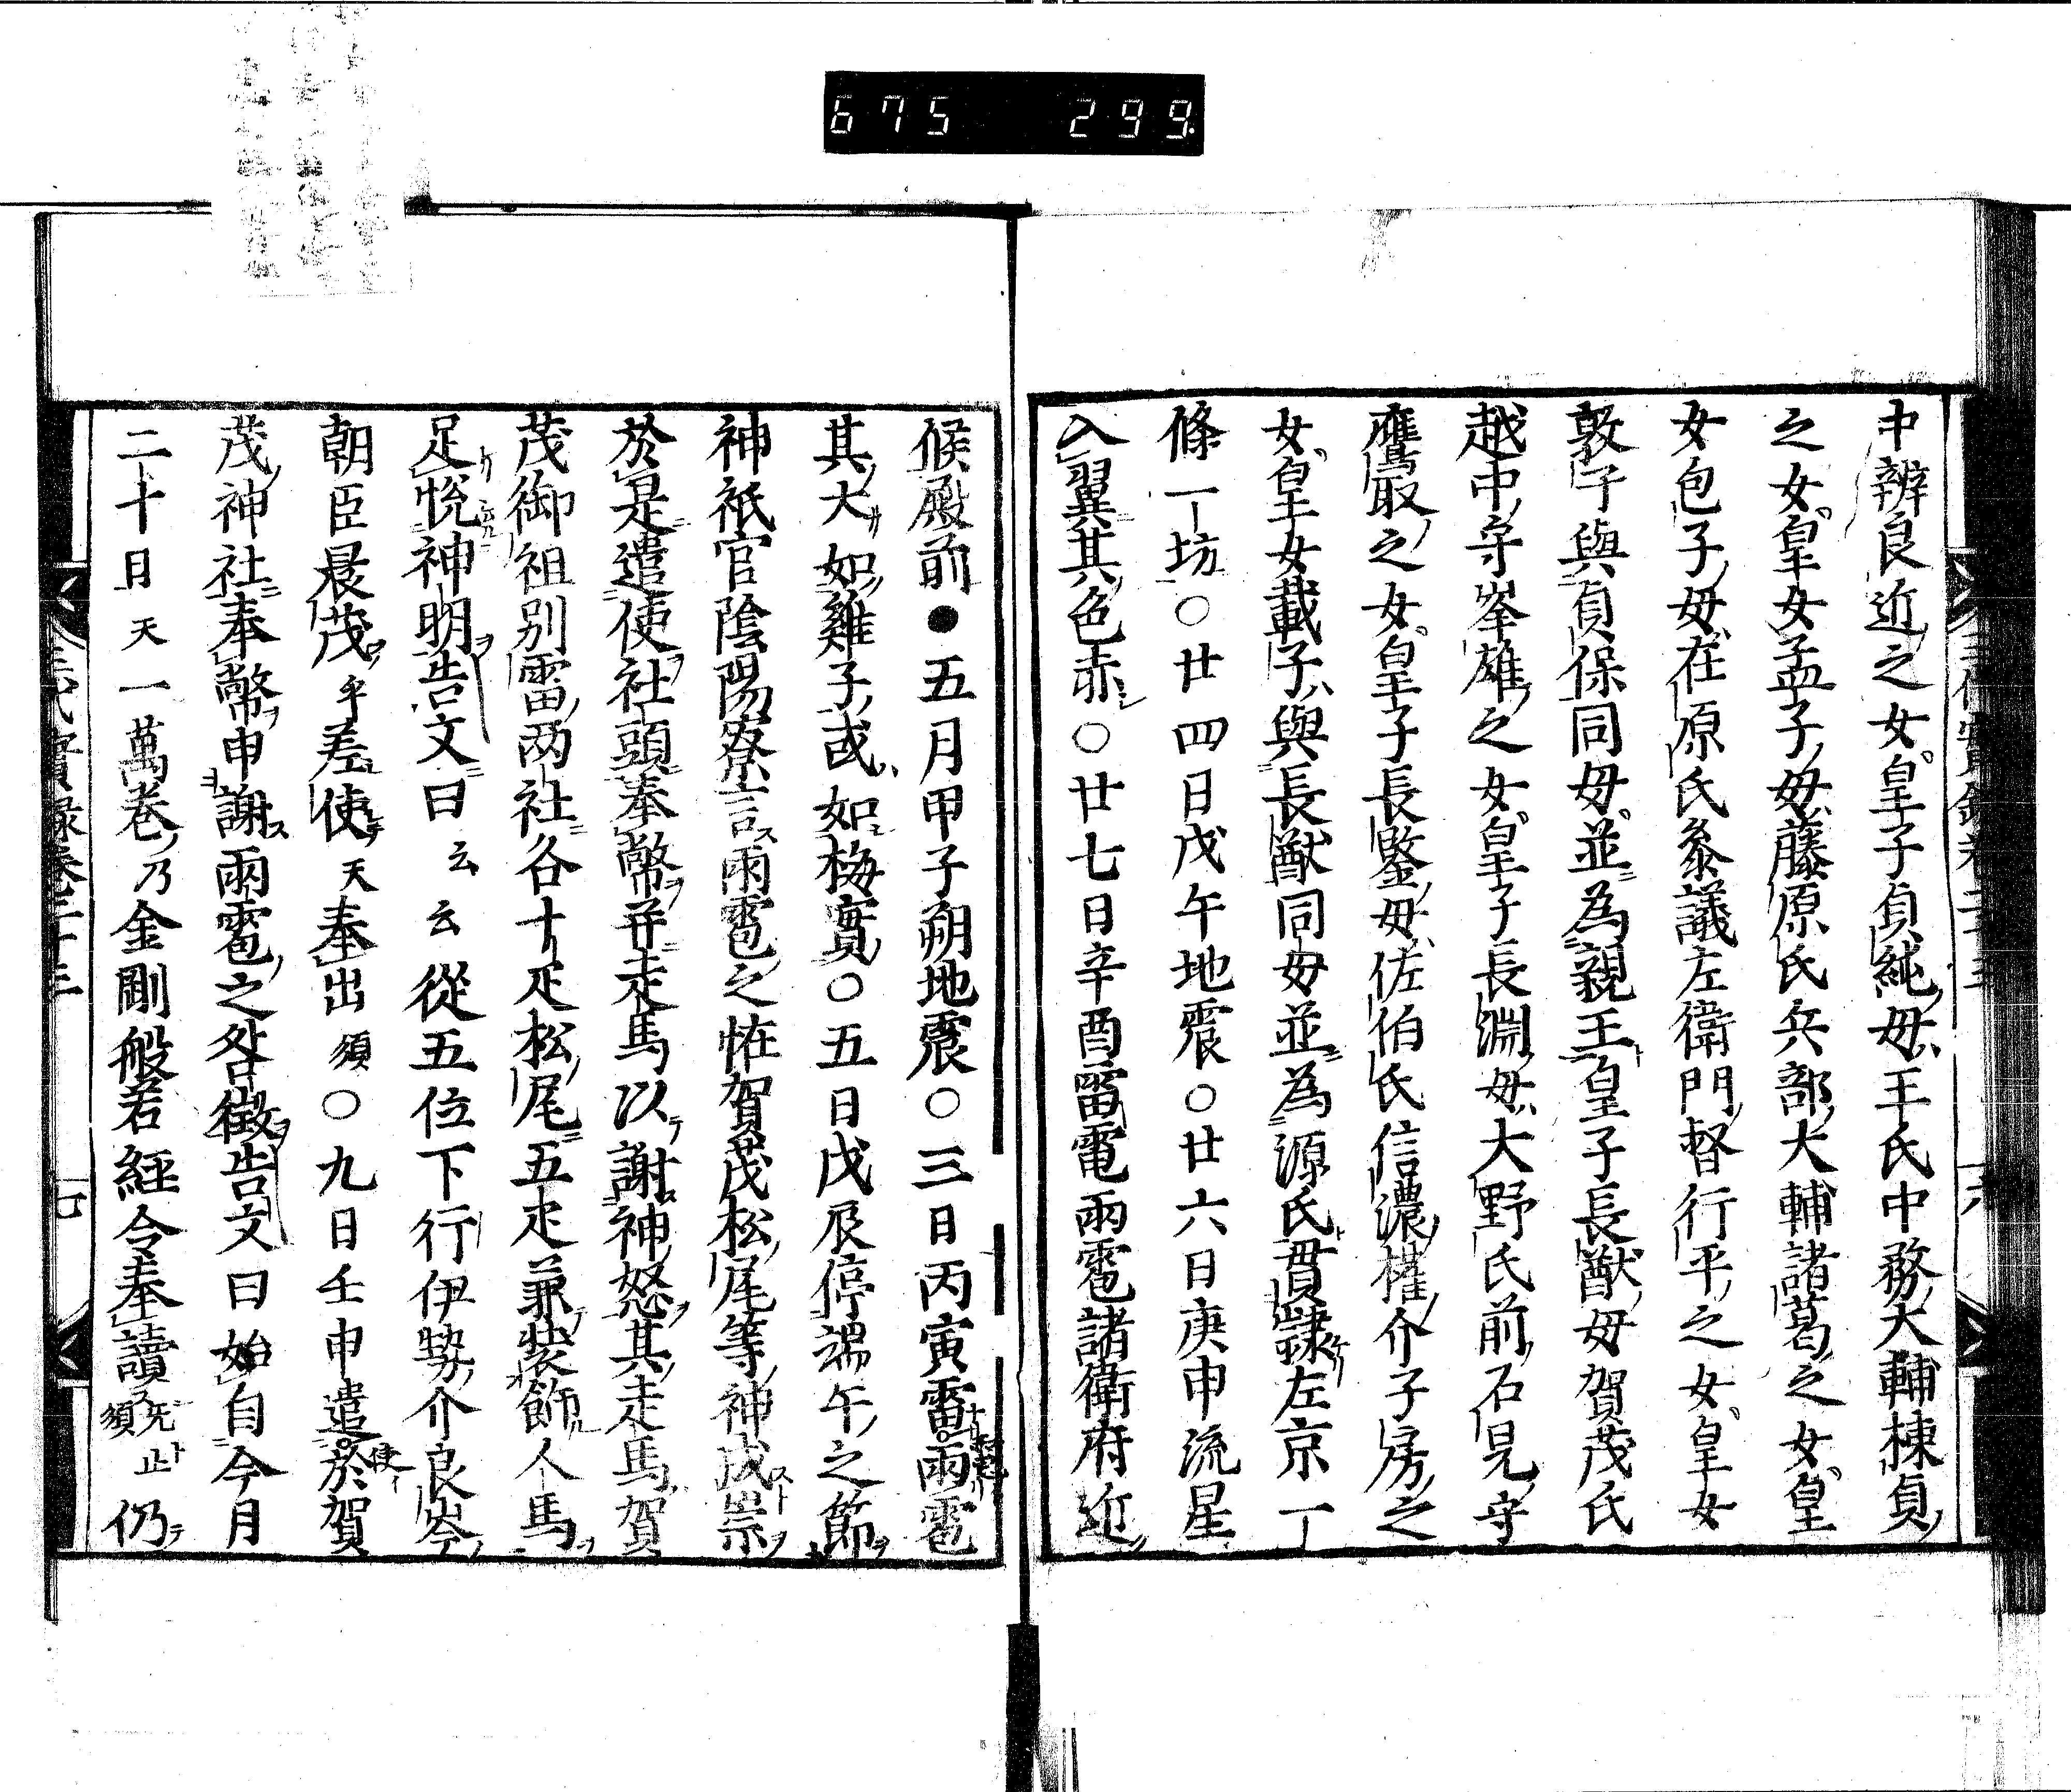 675 299
中辨良近之女皇子貞純母王氏中務大輔棟貞
之女皇女孟子母藤原氏兵部大輔諸葛之女皇
女包子母在原氏叅議左衛門督行平之女皇女
敦子與貞保同母並為親王皇子長猷母賀茂氏
越中守岑雄之女皇子長淵母大野氏前石見守
鷹取之女皇子長鑒母佐伯氏信濃權介子房之
女皇女載子與長猷同母並為源氏貫隷左京一
條一坊○廿四日戊午地震○廿六日庚申流星
入翼其色赤○廿七日辛酉雷電雨雹諸衛府近
候殿前●五月甲子朔地震○三日丙寅雷雨雹
其大如雞子或如梅實○五日戊辰停端午之節
神祇官陰陽寮言雨雹之恠賀茂松尾等神成祟
於是遣使社頭奉幣并走馬以謝神怒其走馬賀
茂御祖別雷两社各十疋松尾五疋兼装飾人馬
足悅神明告文曰云云從五位下行伊勢介良岑
朝臣晨茂乎差使天奉出須○九日壬申遣使於賀
茂神社奉幣申謝雨雹之咎徵告文曰始自今月
二十日天一萬巻乃金剛般若経令奉讀止仍